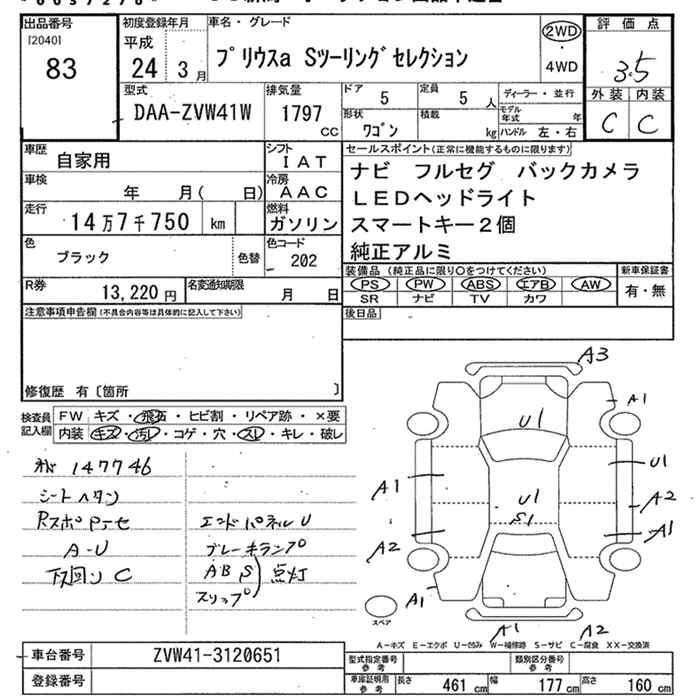 出品番号
[2040]
83
初度登録年月
平成
24年 3月
車名・グレード
プリウスa Sツーリングセレクション
2WD
・
4WD
評価点
3.5
外装 内装
C C
型式
DAA-ZVW41W
排気量
1797
CC
ドア
5
定員
5人
形状
ワゴン
積載
kg
ディーラー・並行
モデル年式 年
ハンドル 左・右
車歴
自家用
シフト
IAT
車検
年 月( 日)
冷房
AAC
走行
14万7千750 km
燃料
ガソリン
色
ブラック
色替
色コード
202
R券
13,220円
名変通知期限
月 日
セールスポイント(正常に機能するものに限ります)
ナビ フルセグ バックカメラ
LEDヘッドライト
スマートキー2個
純正アルミ
装備品(純正品に限り○をつけてください)
PS PW ABS エアB AW
SR ナビ TV カワ
新車保証書
有・無
後日品
注意事項申告欄(不具合内容等は具体的に記入して下さい)
修復歴 有〔箇所 〕
検査員記入欄
FW キズ・飛石・ヒビ割・リペア跡・×要
内装 キズ・汚レ・コゲ・穴・スレ・キレ・破レ
147746
シートヘタリ
A-U
下回り C
エンドパネル U
ブレーキランプ
ABS
スリップ
点灯
A3
A1
U1
U1
A1
U1
S1
A2
A2
A1
A1
スペア
A1
A2
A-キズ E-エクボ U-凹み W-補修跡 S-サビ C-腐食 XX-交換済
車台番号
ZVW41-3120651
登録番号
型式指定番号
参考
類別区分番号
参考
車庫証明用
参考
長さ 461cm 幅 177cm 高さ 160cm